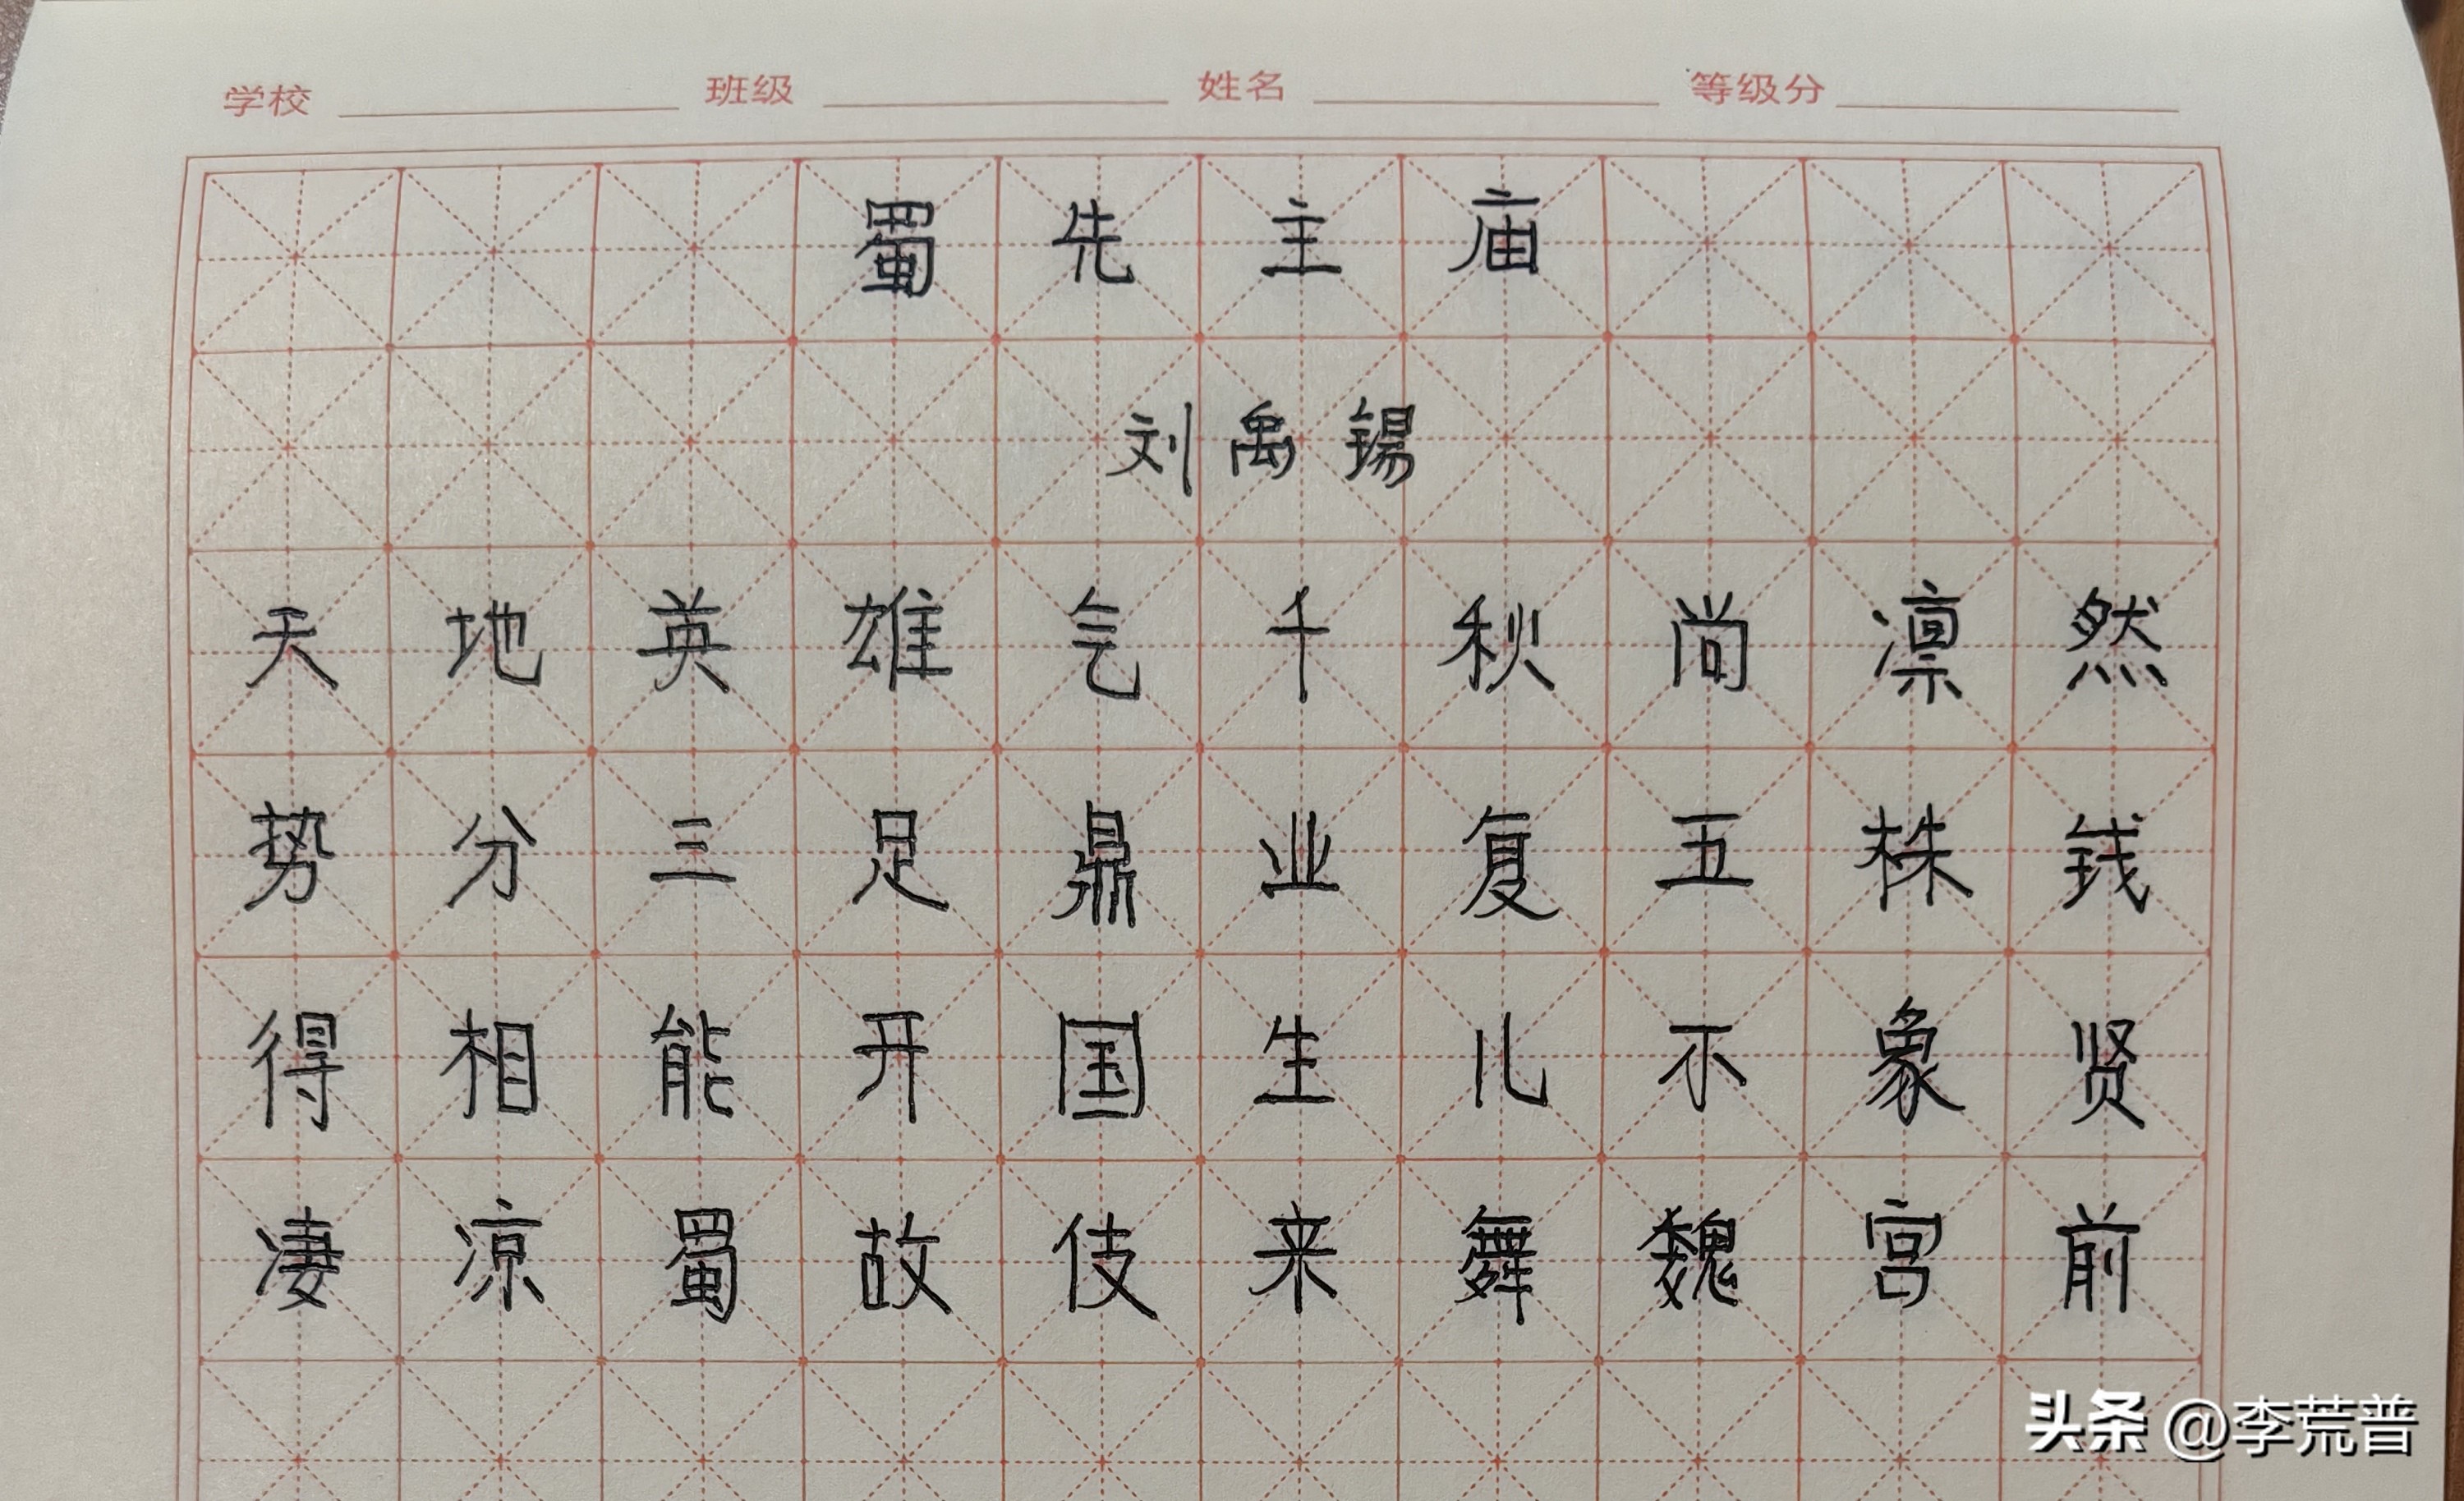 学校 班级 姓名 等级分
蜀先主庙
刘禹锡
天地英雄气千秋尚凛然
势分三足鼎业复五株钱
得相能开国生儿不象贤
凄凉蜀故伎来舞魏宫前
头条 @李荒普